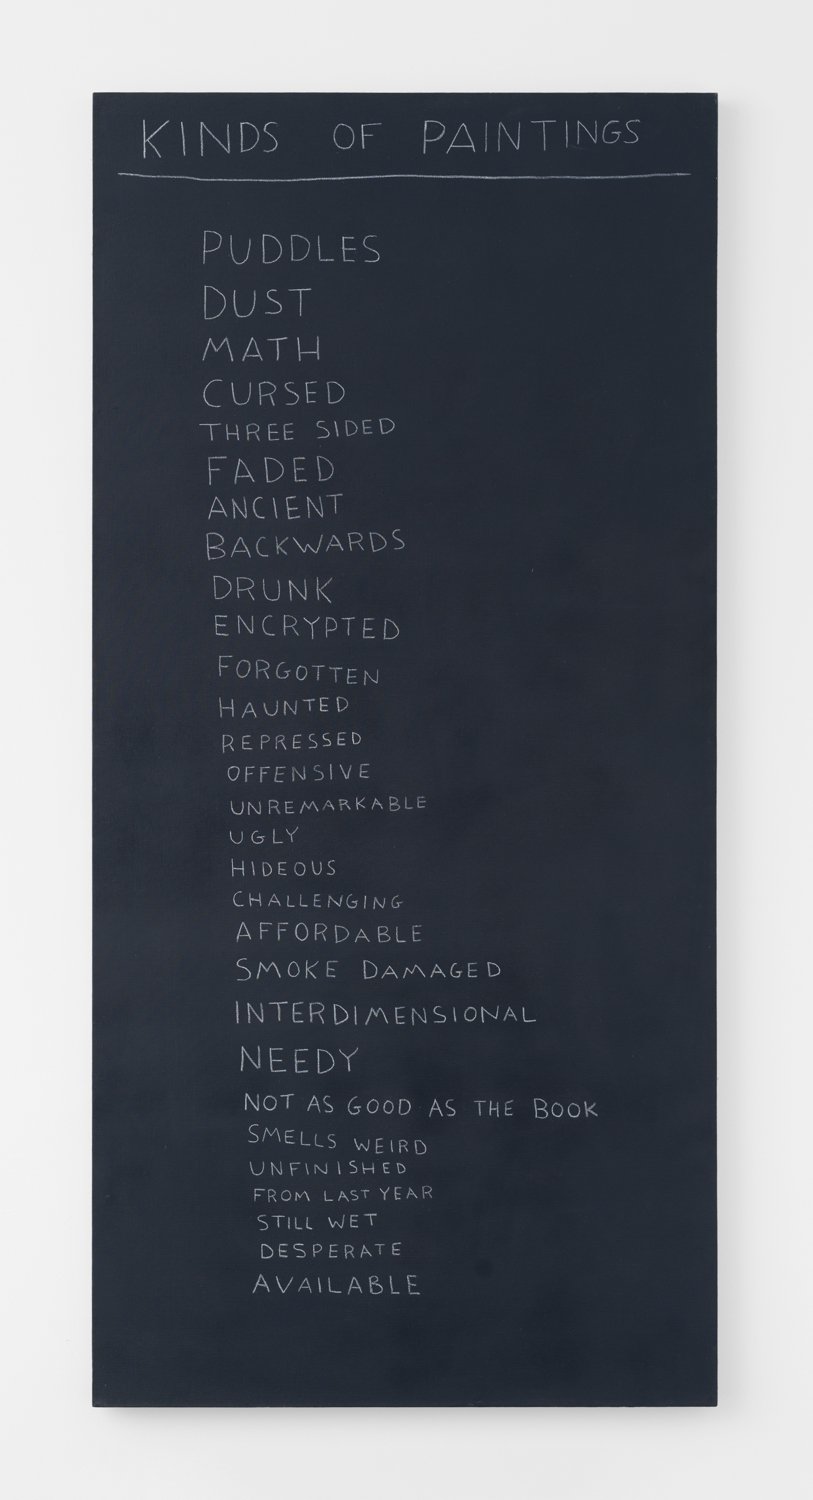 KINDS OF PAINTINGS
PUDDLES
DUST
MATH
CURSED
THREE SIDED
FADED
ANCIENT
BACKWARDS
DRUNK
ENCRYPTED
FORGOTTEN
HAUNTED
REPRESSED
OFFENSIVE
UNREMARKABLE
UGLY
HIDEOUS
CHALLENGING
AFFORDABLE
SMOKE DAMAGED
INTERDIMENSIONAL
NEEDY
NOT AS GOOD AS THE BOOK
SMELLS WEIRD
UNFINISHED
FROM LAST YEAR
STILL WET
DESPERATE
AVAILABLE